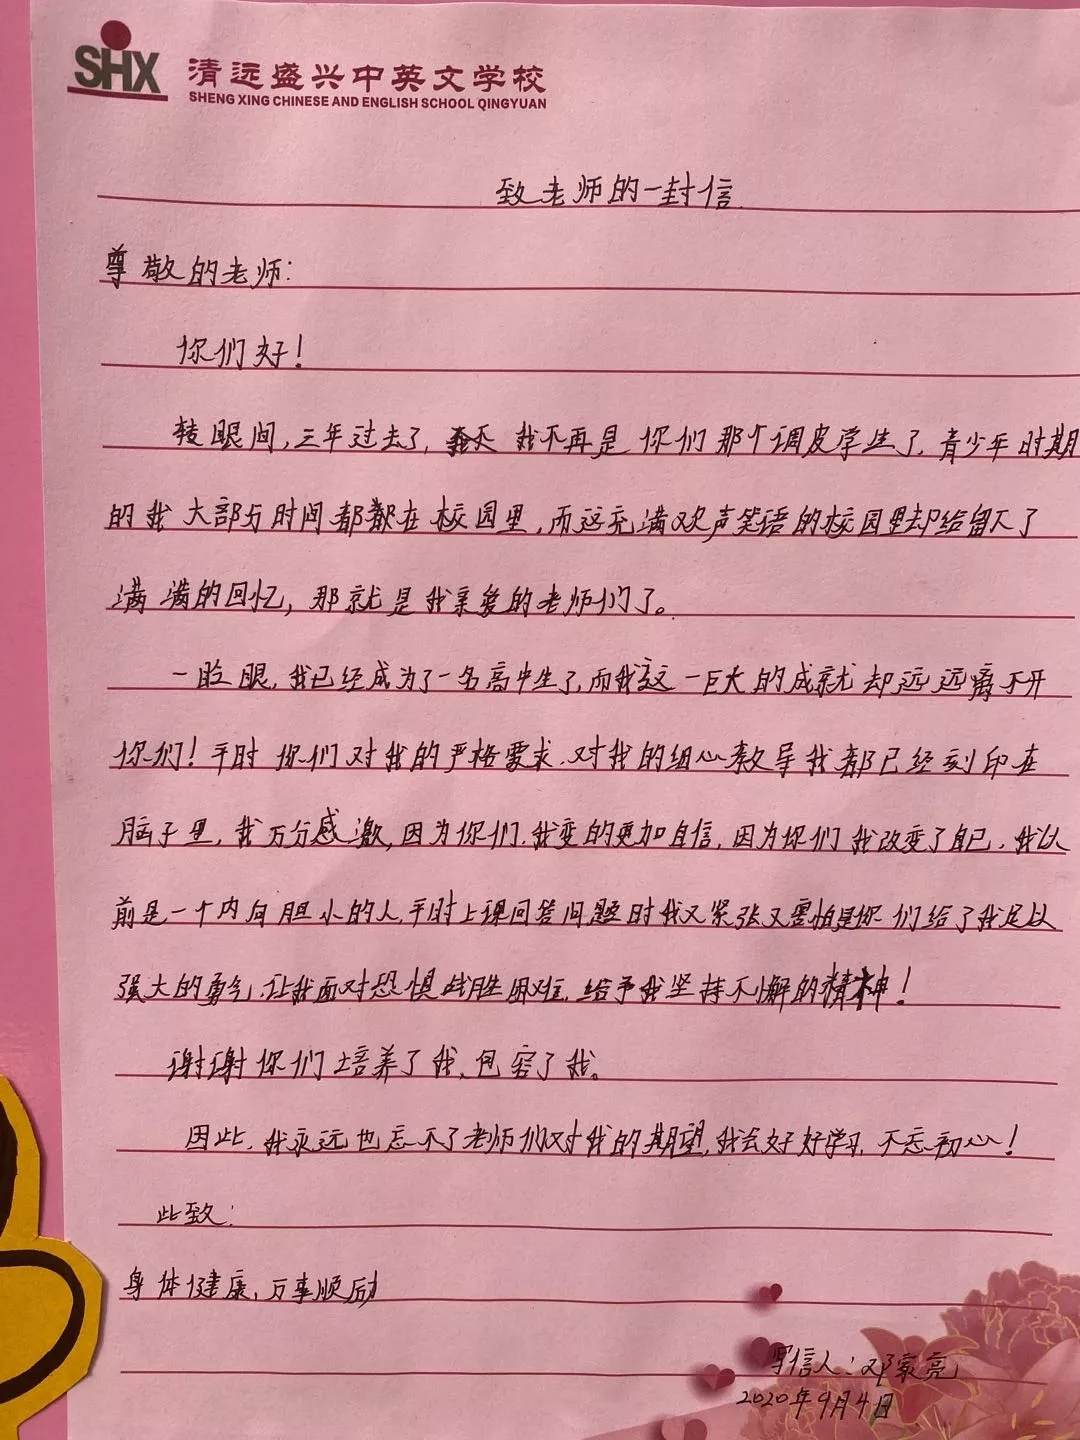 SHX
清远盛兴中英文学校
SHENG XING CHINESE AND ENGLISH SCHOOL QINGYUAN
致老师的一封信
尊敬的老师:
你们好!
转眼间,三年过去了, 我不再是你们那个调皮学生了,青少年时期
的我大部分时间都献在校园里,而这充满欢声笑语的校园里却给留下了
满满的回忆,那就是我亲爱的老师们了。
一眨眼,我已经成为了一名高中生了,而我这一巨大的成就却远远离不开
你们!平时你们对我的严格要求,对我的细心教导我都已经刻印在
脑子里,我万分感激,因为你们,我变的更加自信,因为你们我改变了自己,我以
前是一个内向胆小的人,平时上课回答问题时我又紧张又害怕是你们给了我足以
强大的勇气,让我面对恐惧战胜困难,给予我坚持不懈的精神!
谢谢你们培养了我、包容了我。
因此,我永远也忘不了老师们对我的期望,我会好好学习,不忘初心!
此致:
身体健康,万事顺励
写信人:邓家亮
2020年9月4日